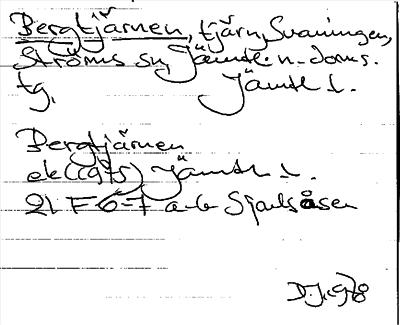 Bergtjärnen, tjärn, Svaningen,
Ströms sn, Jämtl. n. doms.
tg, Jämtl l.
Bergtjärnen
ek (1975) Jämtl l.
21 F 6-7 a-b Sjoutsåsen
D.J. 1978